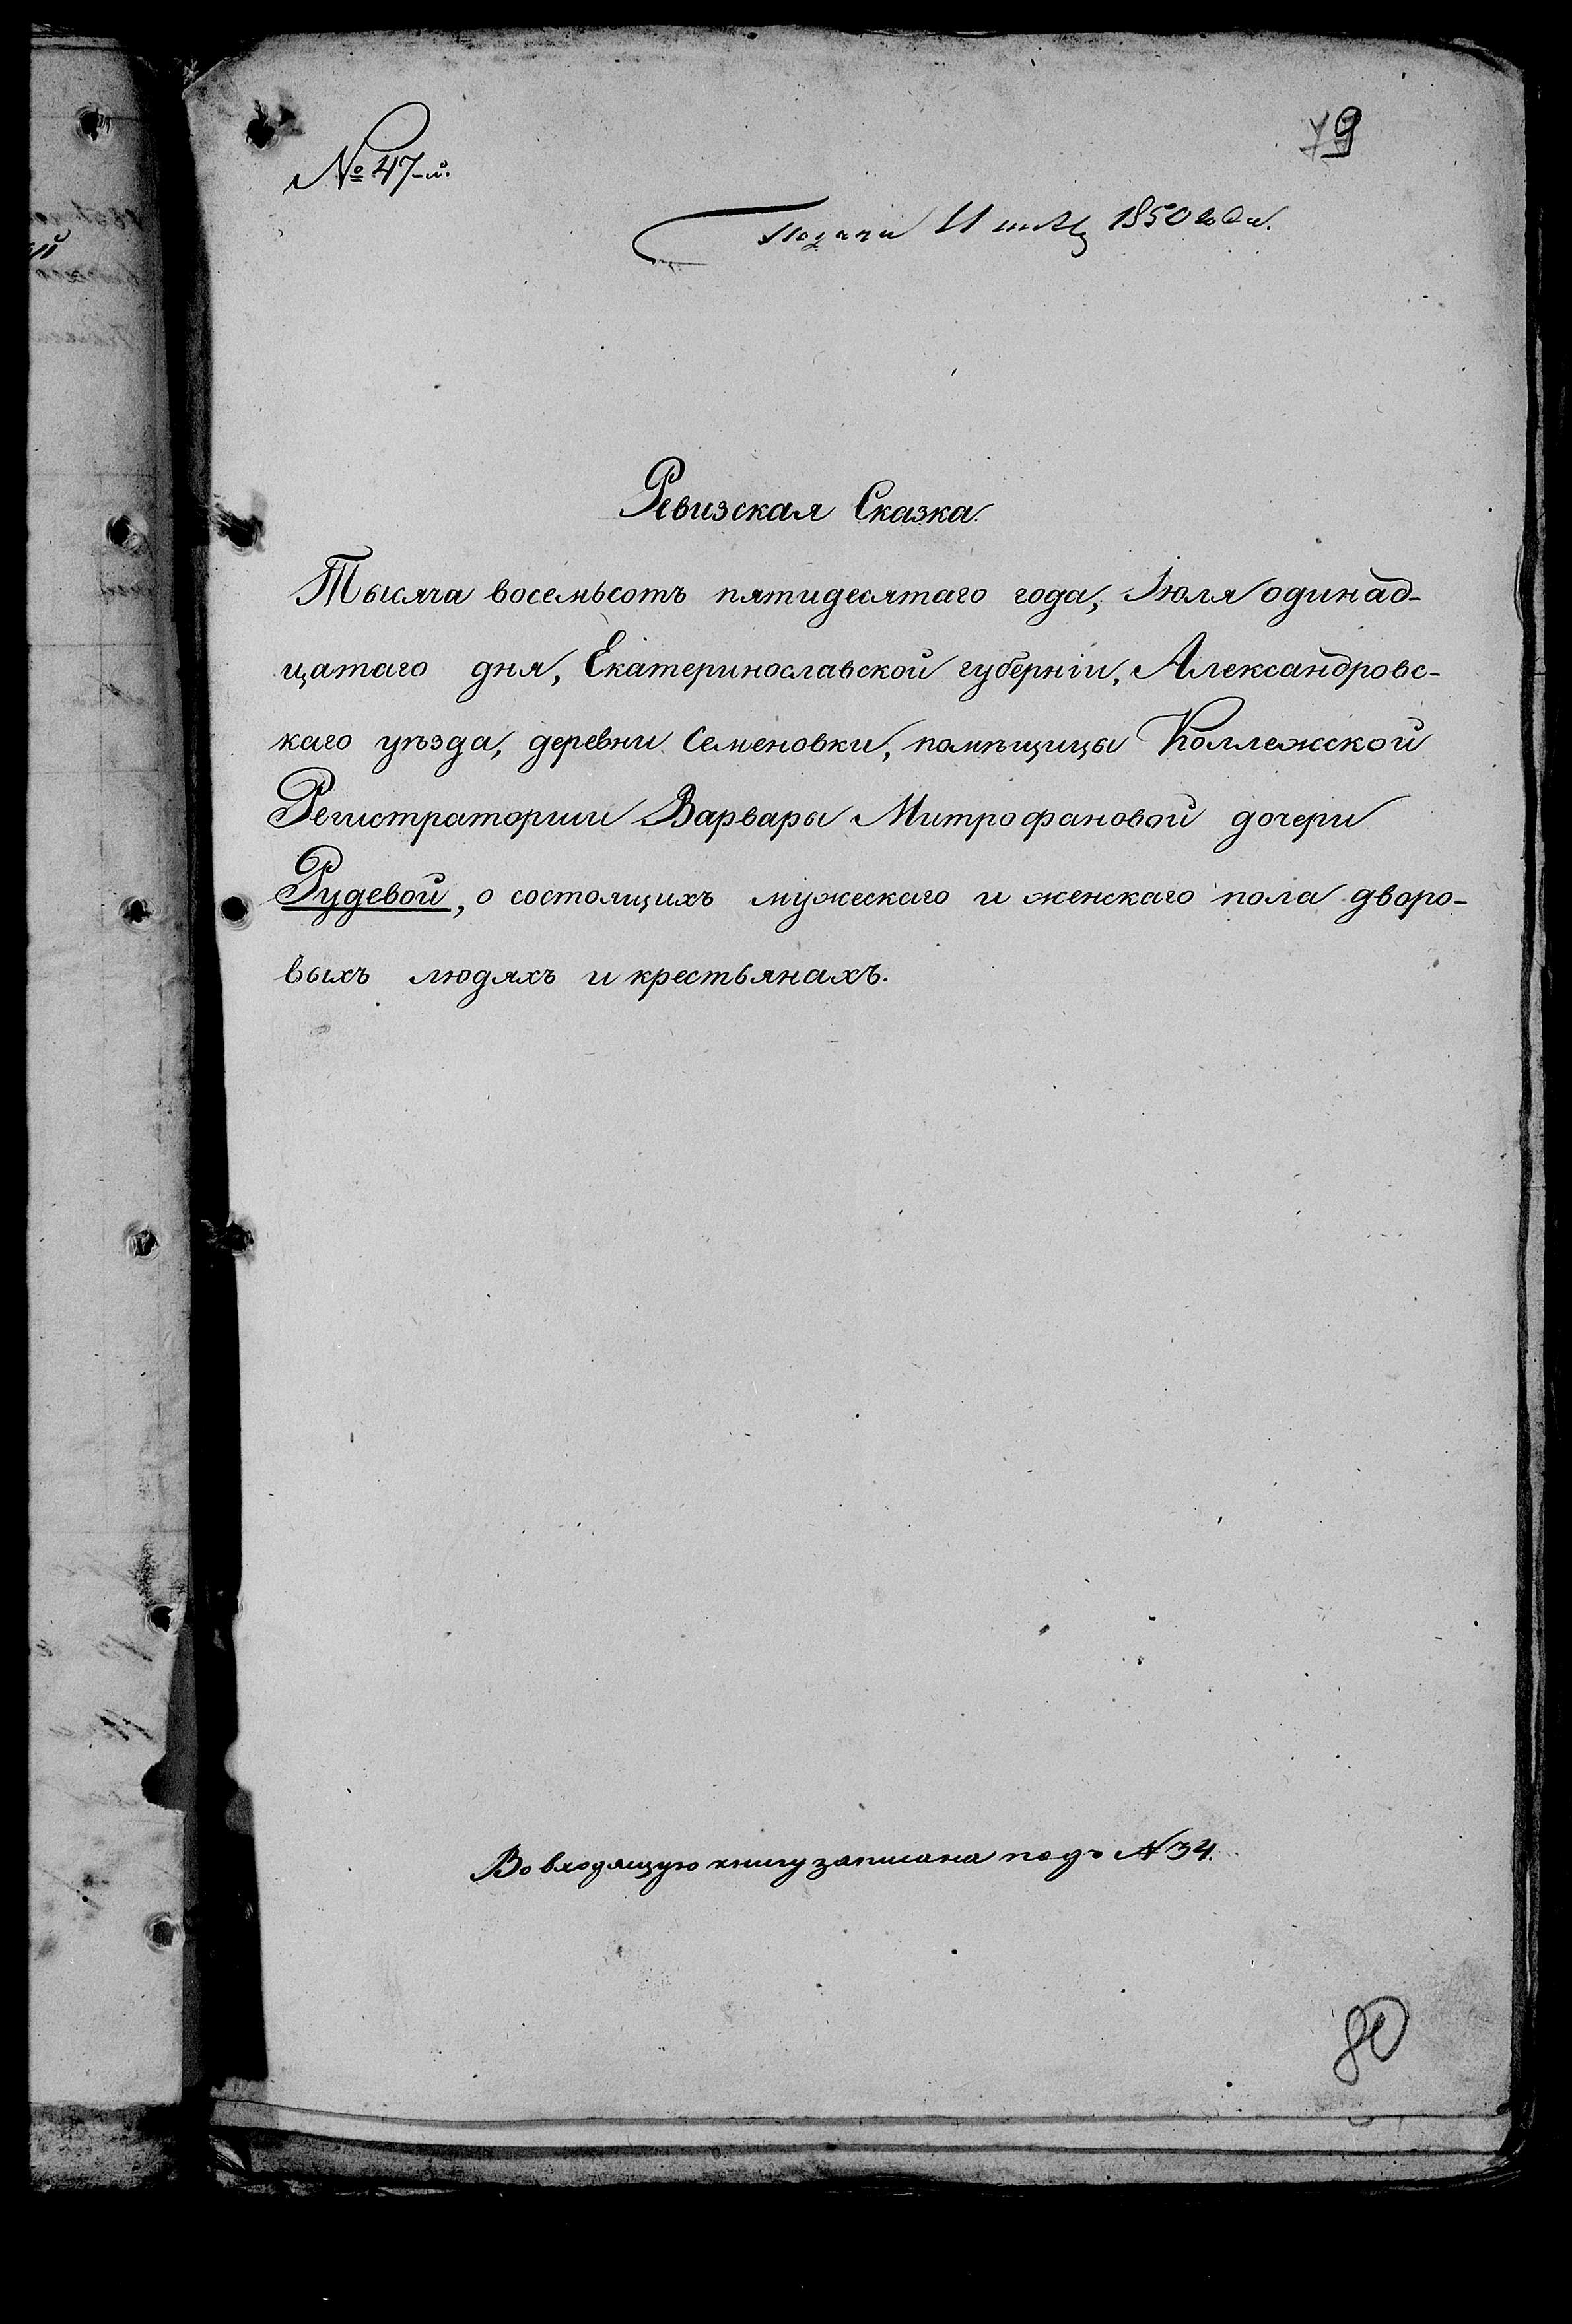 79
№ 47-й.
11 1850 года.
Ревизская Сказка.
Тысяча восемьсотъ пятидесятаго года, Іюля одинад-
цатаго дня, Екатеринославской губерніи, Александровс-
каго уѣзда, деревни Семеновки, помѣщицы Коллежской
Регистраторши Варвары Митрофановой дочери
Рудевой, о состоящихъ мужескаго и женскаго пола дворо-
выхъ людяхъ и крестьянахъ.
Во входящую книгу записана подъ № 34.
80